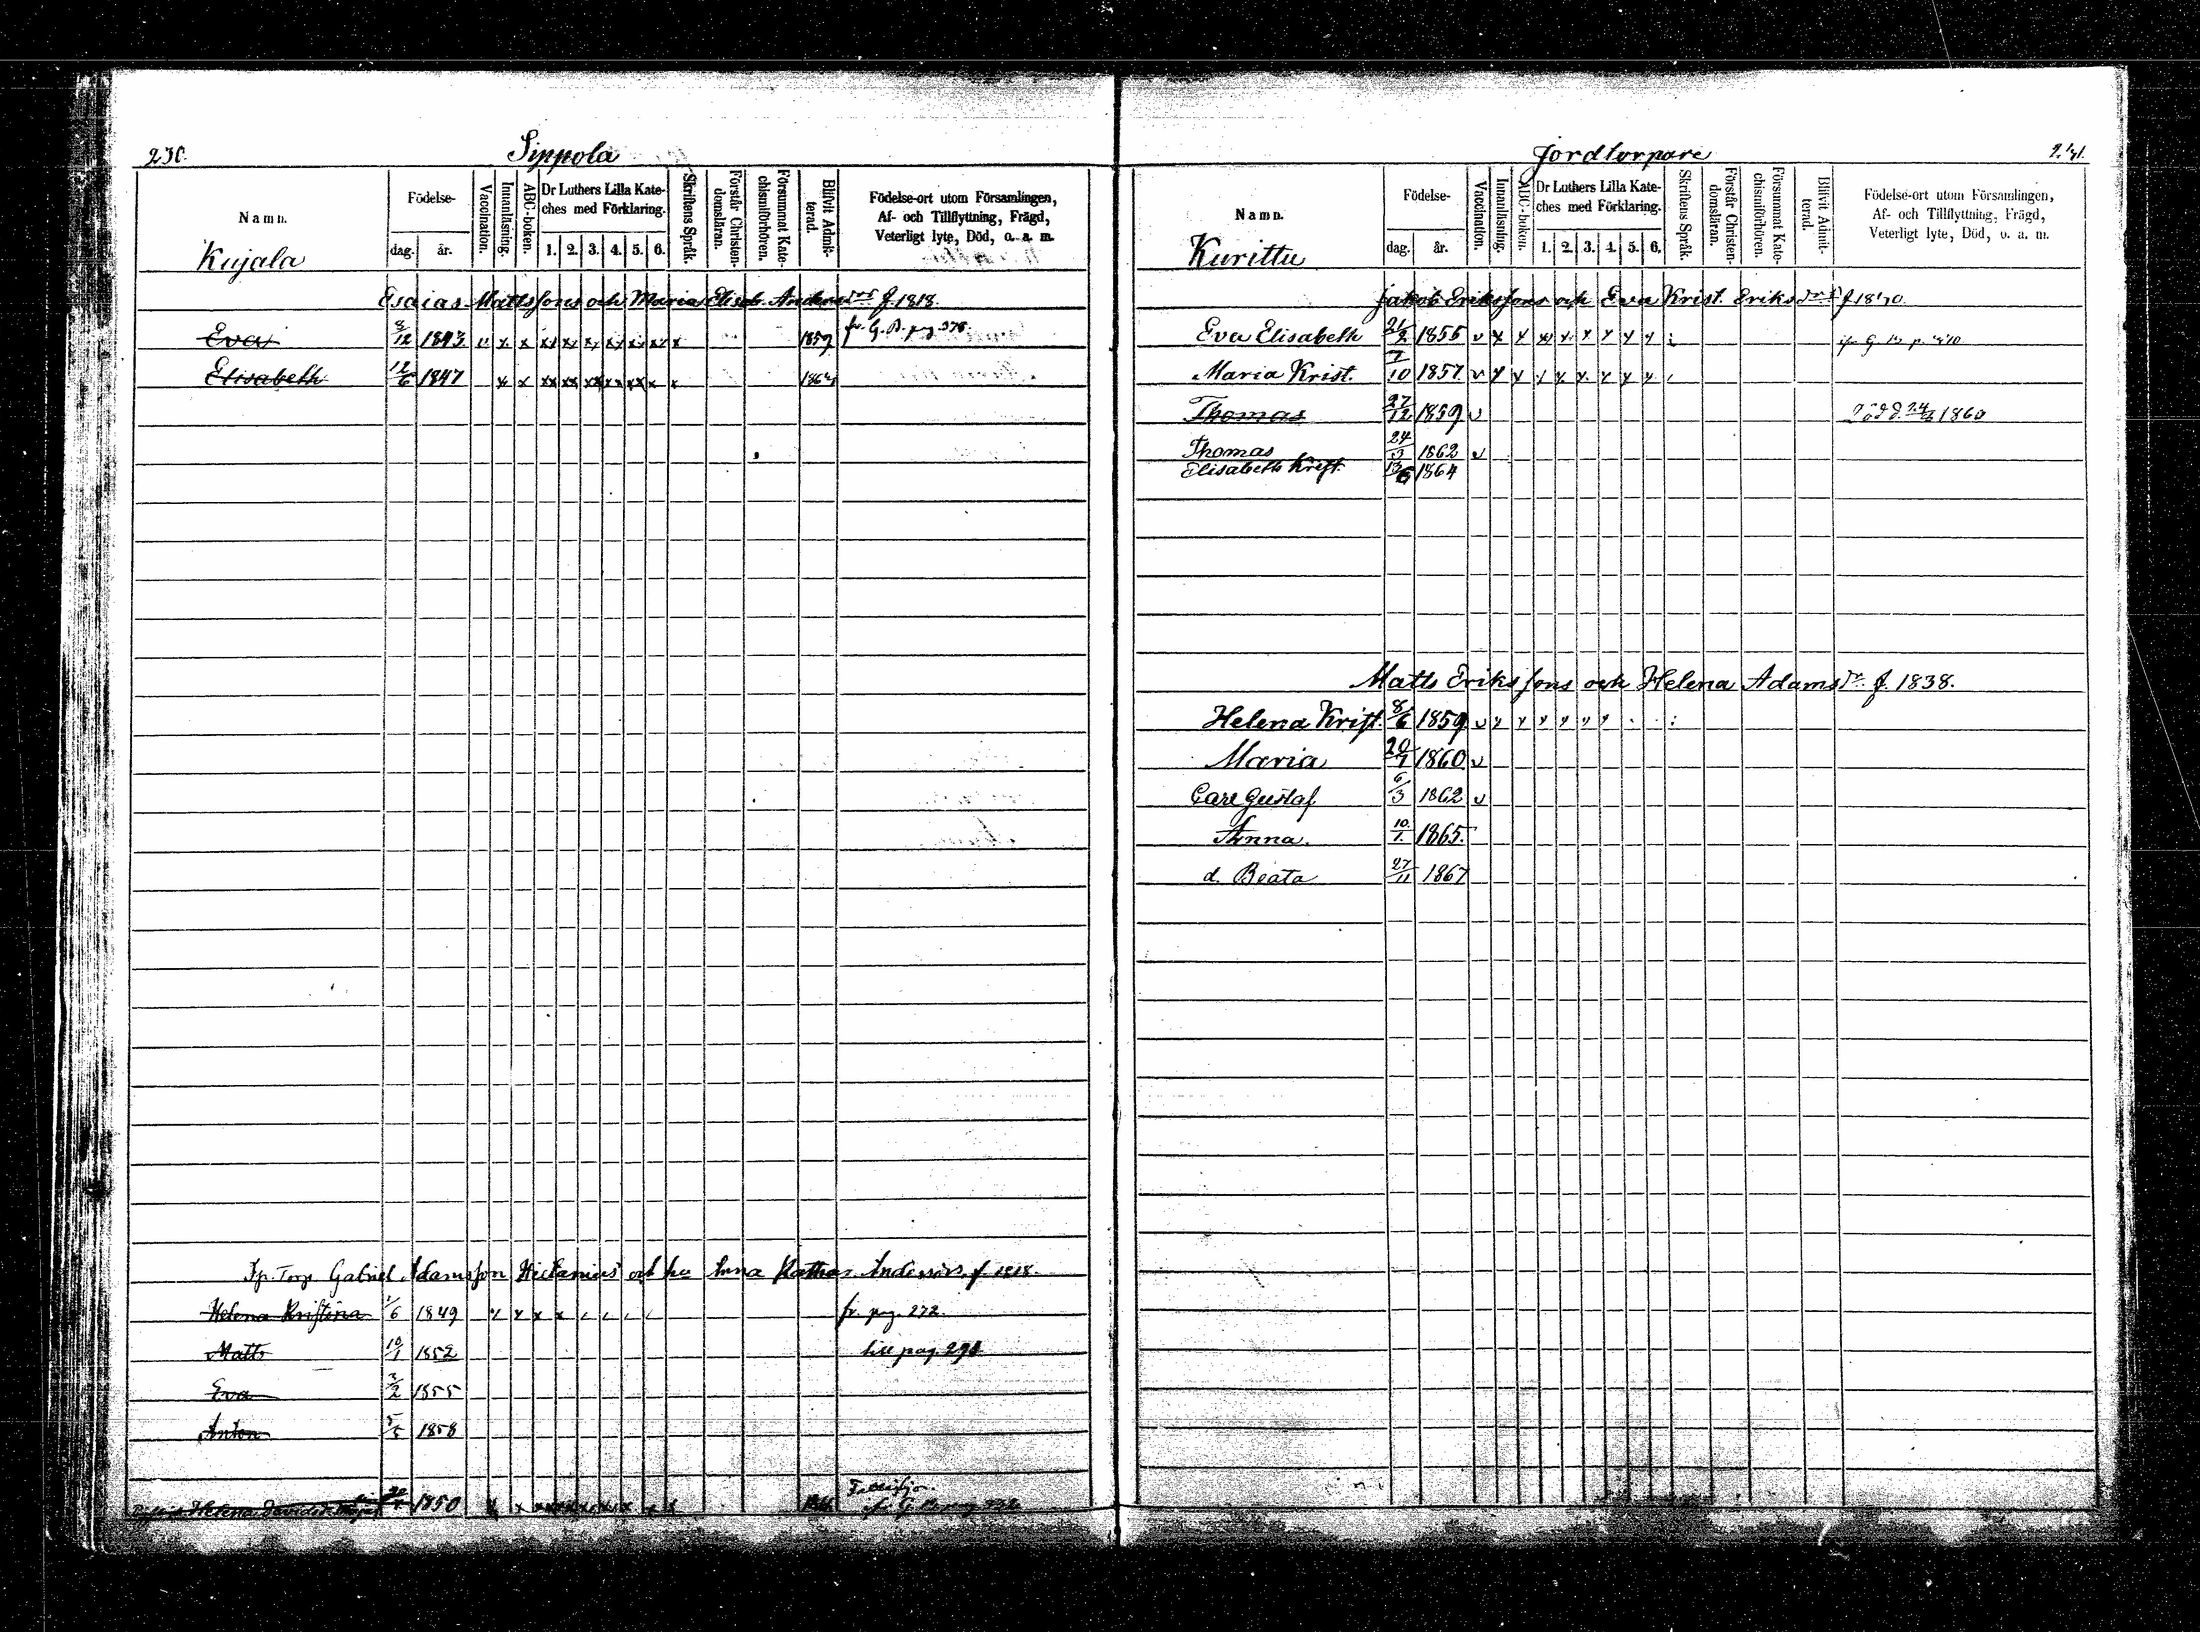 230.
Sippola
Namn.
Födelse-
dag.
år.
Vaccination.
Innanläsning.
ABC-boken.
Dr Luthers Lilla Kate-
ches med Förklaring.
1. 2. 3. 4. 5. 6.
Skriftens Språk.
Förstår Christen-
domsläran.
Försummat Kate-
chismiförhören.
Blifvit Admit-
terad.
Födelse-ort utom Församlingen,
Af- och Tillflyttning, Frägd,
Veterligt lyte, Död, o. a. m.
Kujala
Esaias Mattssons och Maria Elisab. Andersdrs f. 1818.
Eva 8/12 1843 v x x x x x x x x x 1859 fr. G. B. pag. 378.
Elisabeth 12/6 1847 x x xx xx xx xx xx x x
Gabriel Adamsson och hu Anna f. 1818.
Helena Kristina 1/6 1849 x x x x fr. pag. 272.
Matts 10/1 1852 till pag.
Eva 3/2 1855
Anton 5/5 1858
Helena 1850
Jordtorpare
Namn.
Födelse-
dag.
år.
Vaccination.
Innanläsning.
ABC-boken.
Dr Luthers Lilla Kate-
ches med Förklaring.
1. 2. 3. 4. 5. 6.
Skriftens Språk.
Förstår Christen-
domsläran.
Försummat Kate-
chismiförhören.
Blifvit Admit-
terad.
Födelse-ort utom Församlingen,
Af- och Tillflyttning, Frägd,
Veterligt lyte, Död, o. a. m.
Kurittu
Jakob Erikssons och Eva Krist. Eriksdr
Eva Elisabeth 21/2 1855 v x x x x x x x x
Maria Krist. 7/10 1857 v x x x x x x x x
Thomas 27/12 1859 v Död 1860
Thomas 24/3 1862 v
Elisabeth Krist. 13/6 1864
Matts Erikssons och Helena Adamsdr f. 1838.
Helena Krist. 8/6 1859 v x x x x x x
Maria 20/7 1860 v
Carl Gustaf 6/3 1862 v
Anna. 10/1 1865.
d. Beata 27/11 1867